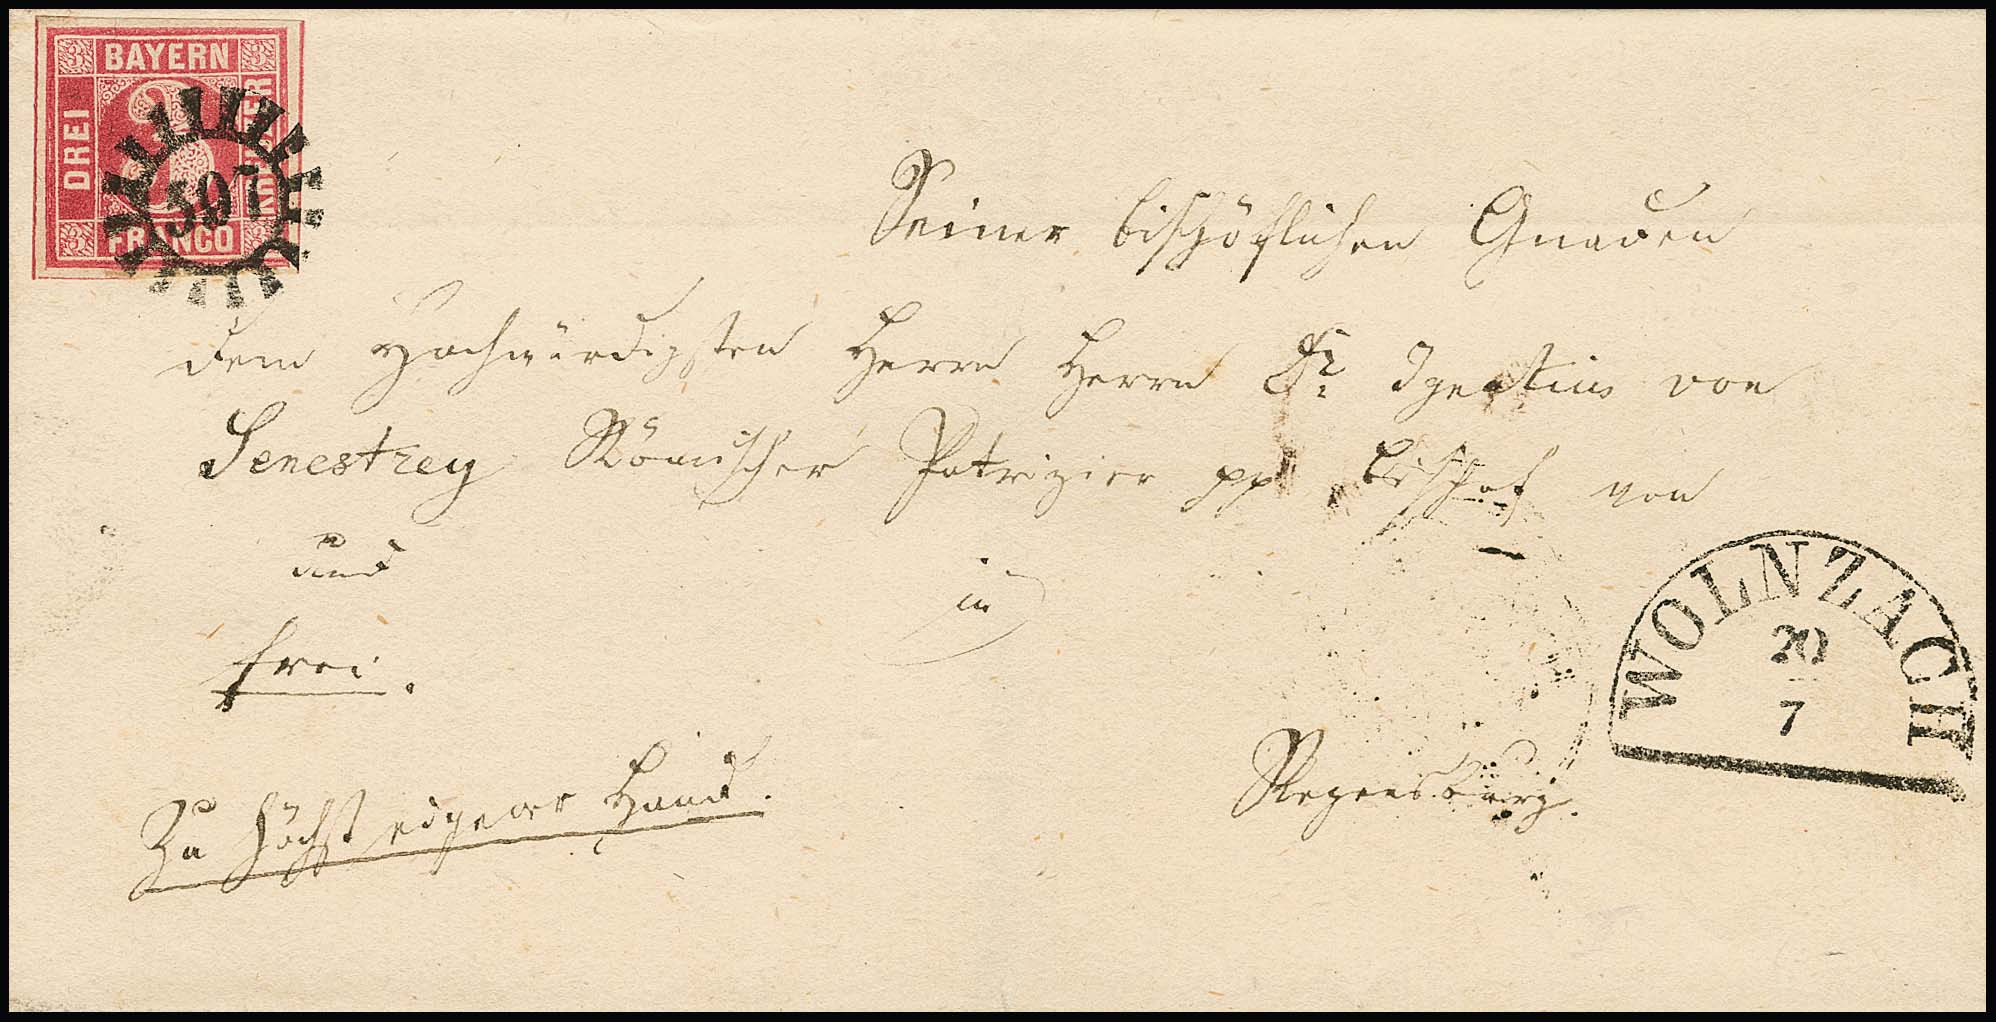 BAYERN
DREI
KREUZER
FRANCO
597
Seiner bischöflichen Gnaden
dem Hochwürdigsten Herrn Herrn Ignatius von
Senestrey Römischer Patrizier pp Bischof von
und in
frei.
WOLNZACH
20
7
Regensburg.
Zu höchst eigener Hand.